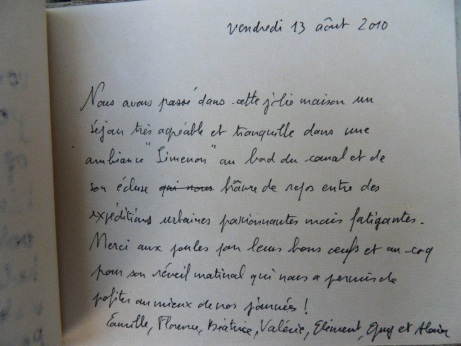 vendredi 13 aôut 2010
Nous avons passé dans cette jolie maison un
séjour très agréable et tranquille dans une
ambiance "Simenon" au bord du canal et de
son écluse qui nous hâvre de repos entre des
expéditions urbaines passionnantes mais fatigantes.
Merci aux poules pour leurs bons oeufs et au coq
pour son réveil matinal qui nous a permis de
profiter au mieux de nos journées !
Camille, Florence, Béatrice, Valérie, Clément, Guy et Alain